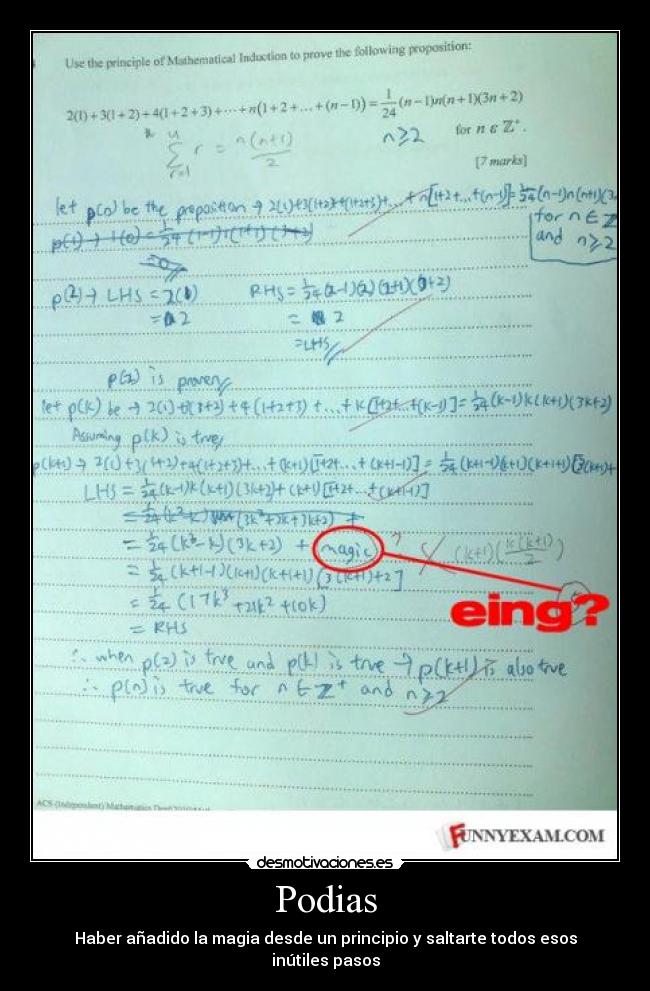 Use the principle of Mathematical Induction to prove the following proposition:
2(1)+3(1+2)+4(1+2+3)+⋯+n(1+2+…+(n−1)) = 1/24 (n−1)n(n+1)(3n+2)
for n ε Z⁺.
n≥2
n Σ r=1 r = n(n+1)/2
[7 marks]
let p(n) be the proposition → 2(1)+3(1+2)+4(1+2+3)+...+n[1+2+...+(n-1)]= 1/24(n-1)n(n+1)(3
for n ∈ Z
and n≥2
p(1) → 1(0) = 1/24 (1-1)1(1+1)(3+2)
p(2) → LHS = 2(1) RHS = 1/24(2-1)(2)(2+1)(+2)
= 2 = 2
=LHS
p(2) is proven
let p(k) be → 2(1)+3(+2)+4(1+2+3)+...+k[1+2+...+(k-1)]= 1/24(k-1)k(k+1)(3k+2)
Assuming p(k) is true,
p(k+1) → 2(1)+3(1+2)+4(1+2+3)+...+(k+1)[1+2+...+(k+1-1)] = 1/24(k+1-1)(k+1)(k+1+1)[3(k+1)+
LHS = 1/24(k-1)k(k+1)(3k+2)+(k+1)[1+2+...+(k+1-1)]
= 1/24(k²-k)(3k²+2k+3k+2) +
= 1/24(k³-k)(3k+2) + magic ? (k+1)(k(k+1)/2)
= 1/24(k+1-1)(k+1)(k+1+1)[3(k+1)+2]
eing?
= 1/24(17k³+21k²+10k)
= RHS
∴ when p(2) is true and p(k) is true → p(k+1) is also true
∴ p(n) is true for n ∈ Z⁺ and n≥2
ACS (Independent) Mathematics Dept
FUNNYEXAM.COM
desmotivaciones.es
Podias
Haber añadido la magia desde un principio y saltarte todos esos
inútiles pasos